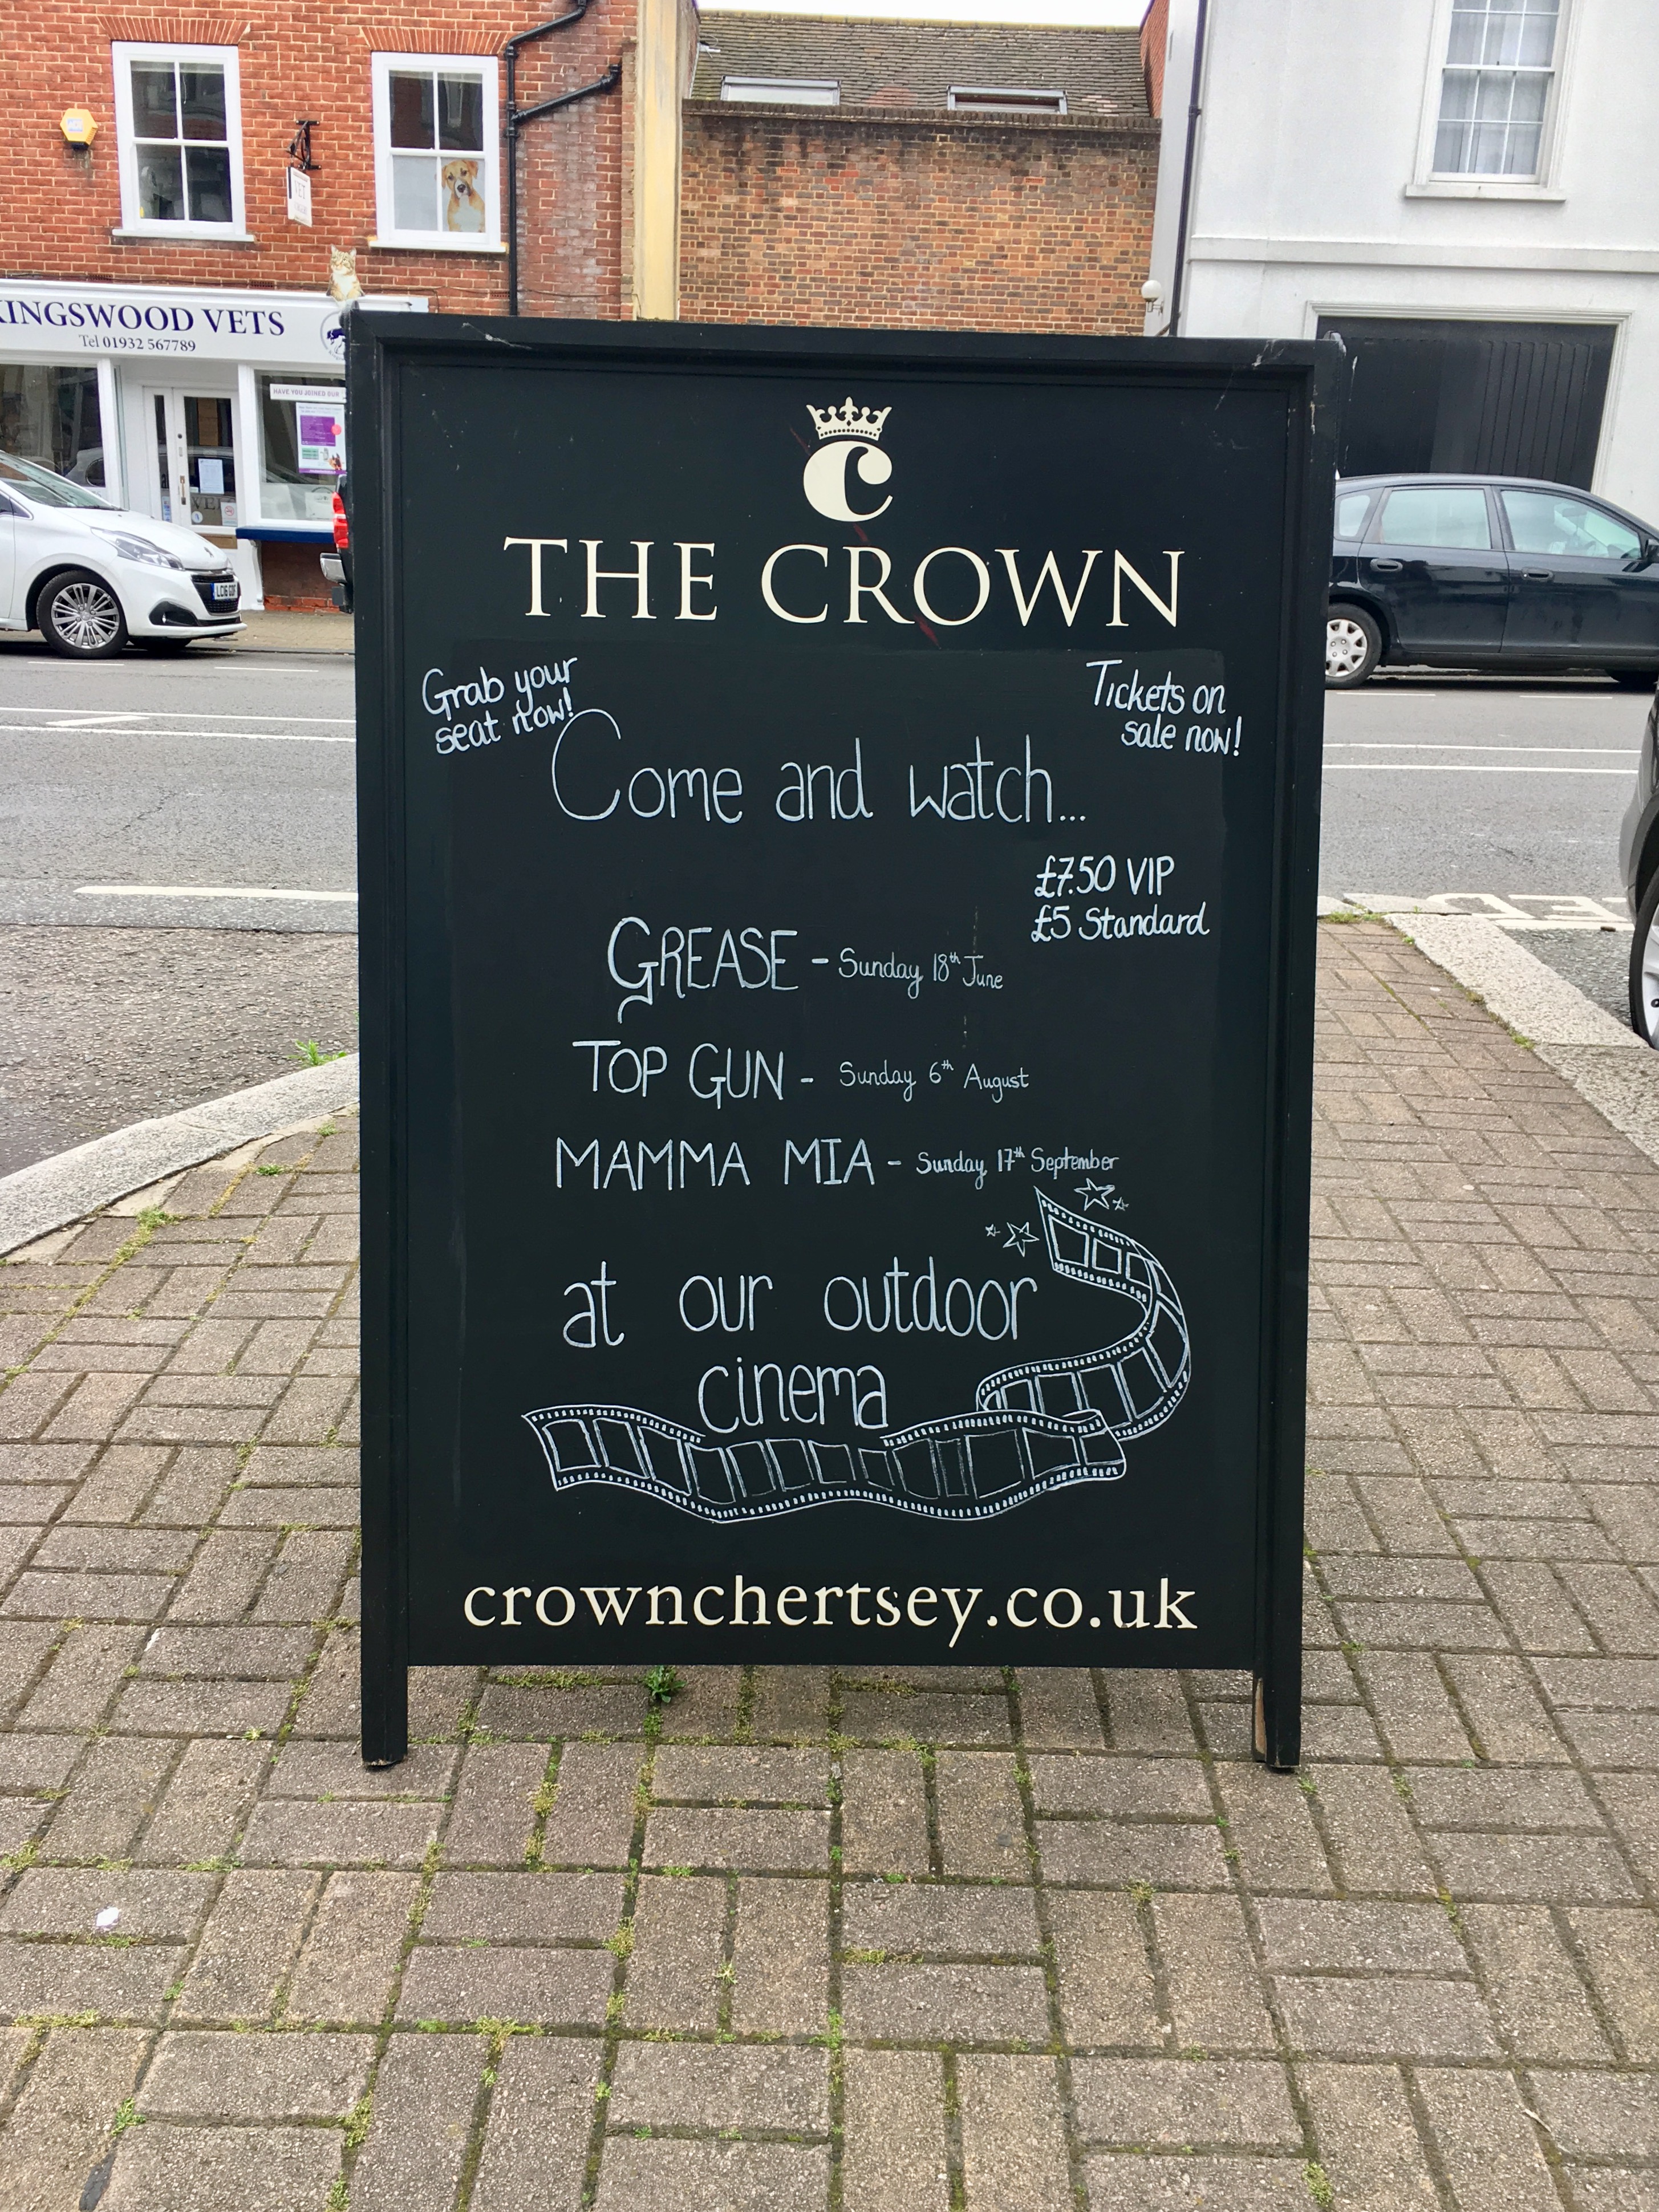 KINGSWOOD VETS
Tel 01932 567789
VET
HAVE YOU JOINED OUR
C
THE CROWN
Grab your
seat now!
Tickets on
sale now!
Come and watch...
£7.50 VIP
£5 Standard
GREASE - Sunday 18th June
TOP GUN - Sunday 6th August
MAMMA MIA - Sunday 17th September
at our outdoor
cinema
crownchertsey.co.uk